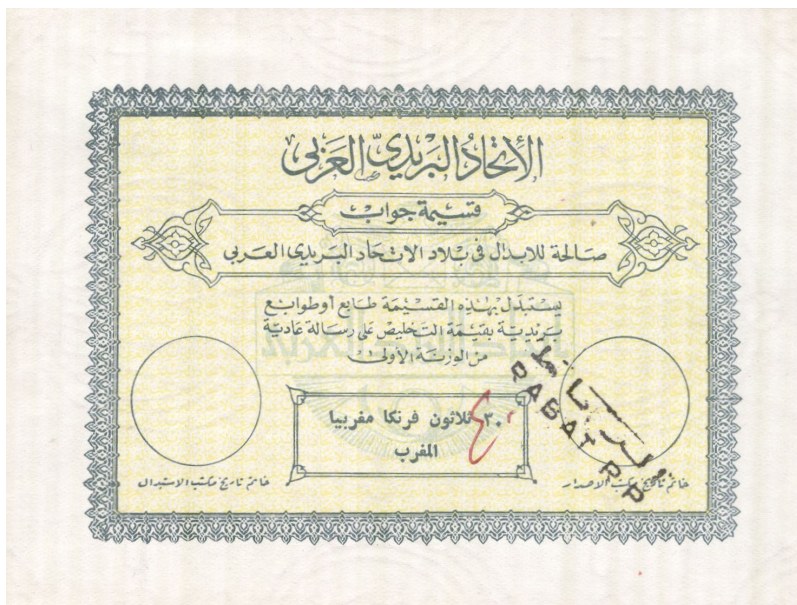 الاتحاد البريدي العربي
قسيمة جواب
صالحة للابدال في بلاد الاتحاد البريدي العربي
يستبدل بهذه القسيمة طابع أو طوابع
بريدية بقيمة التخليص على رسالة عادية
من الوزنة الأولى
٣٠ ثلاثون فرنكا مغربيا
المغرب
الرباط
RABAT R.P
خاتم تاريخ مكتب الاصدار
خاتم تاريخ مكتب الاستبدال